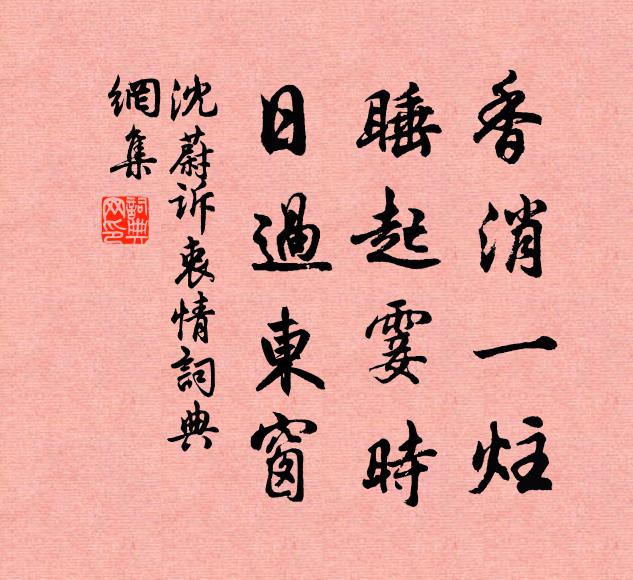 香消一炷
睡起霎時
日過東窗
沈蔚诉衷情詞典
網集
詞典
网印